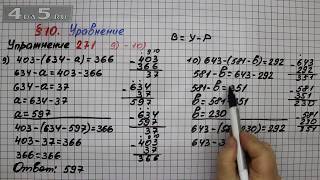 4da5.ru
§10. Уравнение
Упражнение 271 9)-10)
В = У-Р
9) 403-(634-a)=366
634-a=403-366
634-a=37
a=634-37
a=597
403-(634-597)=366
403-37=366
366=366
Ответ: 597
403
366
37
634
37
597
634
597
37
403
37
366
10) 643-(581-b)=292
581-b=643-292
581-b=351
b=581-351
b=230
643-(581-230)=292
643
292
351
581
351
230